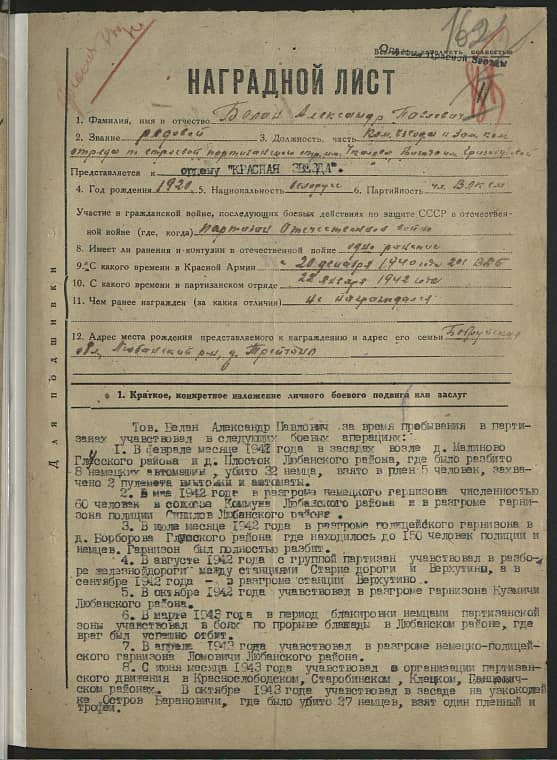 Орден Красной Звезды
НАГРАДНОЙ ЛИСТ
1. Фамилия, имя и отчество Белан Александр Павлович
2. Звание рядовой 3. Должность, часть Ком. взвода и зам. ком.
отряда по строевой партизанского отр. им.
Представляется к ордену "КРАСНАЯ ЗВЕЗДА".
4. Год рождения 1920 5. Национальность белорус 6. Партийность чл. ВЛКСМ
Участие в гражданской войне, последующих боевых действиях по защите СССР и отечествен-
ной войне (где, когда) партизан Отечественной войны
8. Имеет ли ранения и контузии в отечественной войне одно ранение
9. С какого времени в Красной Армии с 20 декабря 1940 года
10. С какого времени в партизанском отряде 22 января 1942 года
11. Чем ранее награжден (за какия отличия) не награждался
12. Адрес места рождения представляемого к награждению и адрес его семьи Бобруйская
обл. Любанский р-н, д.
Для подшивки
1. Краткое, конкретное изложение личного боевого подвига или заслуг
Тов. Белан Александр Павлович за время пребывания в парти-
занах учавствовал в следующих боевых аперациях:
1. В феврале месяце 1942 года в засадах возле д. Малиново
Глусского района и д. Плосток Любанского района, где было разбито
8 немецких автомашин, убито 32 немца, взято в плен 5 человек, захва-
чено 2 пулемета винтовки и автоматы.
2. В мае 1942 года в разгроме немецкого гарнизона численностью
60 человек в совхозе Коммуна Любанского района и в разгроме гарни-
зона полиции Любанского района.
3. В июле месяце 1942 года в разгроме полицейского гарнизона в
д. Борборова Глусского района где находилось до 150 человек полиции и
немцев. Гарнизон был полностью разбит.
4. В августе 1942 года с группой партизан учавствовал в разбо-
ре железной дороги между станциями Старие дороги и Верхутино, а в
сентябре 1942 года - в разгроме станции Верхутино.
5. В октябре 1942 года учавствовал в разгроме гарнизона Кузмичи
Любанского района.
6. В марте 1943 года в период блакировки немцами партизанской
зоны учавствовал в боях по прорыве блакады в Любанском районе, где
враг был успешно отбит.
7. В апреле 1943 года учавствовал в разгроме немецко-полицей-
ского гарнизона Ломовичи Любанского района.
8. С июня месяца 1943 года учавствовал в организации партизан-
ского движения в Краснослободском, Старобинском, Клецком, Ганцевич-
ском районах. В октябре 1943 года учавствовал в засаде на узкоколей
ке Остров Барановичи, где было убито 27 немцев, взят один пленный и
трофеи.